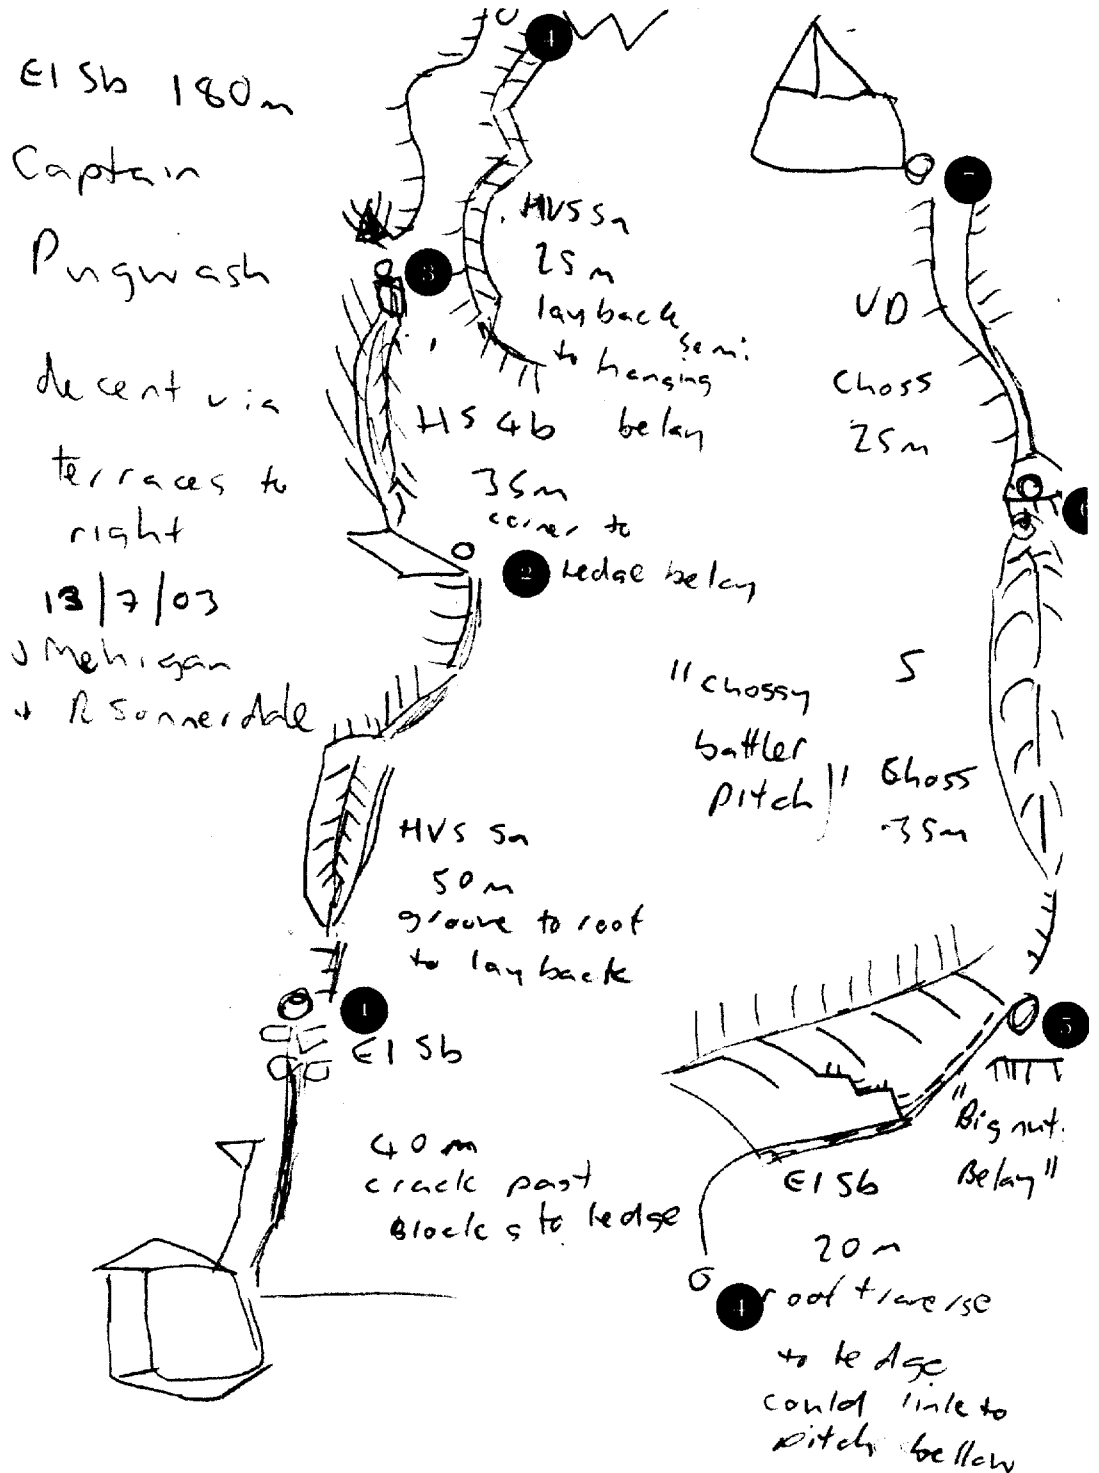 E1 5b 180m
Captain
Pugwash
decent via
terraces to
right
13/7/03
J Mehigan
+ R Sonnerdale
4
HVS 5a
25m
layback
to semi.
hanging
belay
3
HS 4b
35m
corner to
2 ledge belay
HVS 5a
50m
groove to roof
to layback
1
E1 5b
40m
crack past
blocks to ledge
7
VD
Choss
25m
S
"chossy
battler
pitch"
Choss
35m
5
"Big nut.
Belay"
E1 5b
20m
4 roof traverse
to ledge
could link to
pitch bellow